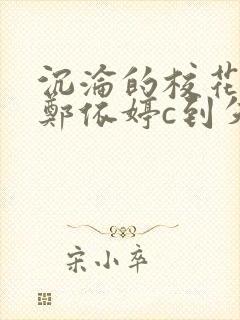 沉淪的校花
鄭依婷c到
宋小卒